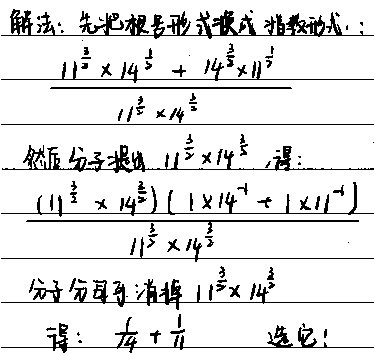 解法：先把根号形式换成指数形式：
11^{3/2} × 14^{1/2} + 14^{3/2} × 11^{1/2}
11^{3/2} × 14^{3/2}
然后分子提出 11^{3/2} × 14^{3/2}，得：
(11^{3/2} × 14^{3/2}) (1 × 14^{-1} + 1 × 11^{-1})
11^{3/2} × 14^{3/2}
分子分母可消掉 11^{3/2} × 14^{3/2}
得： 1/14 + 1/11 选它！